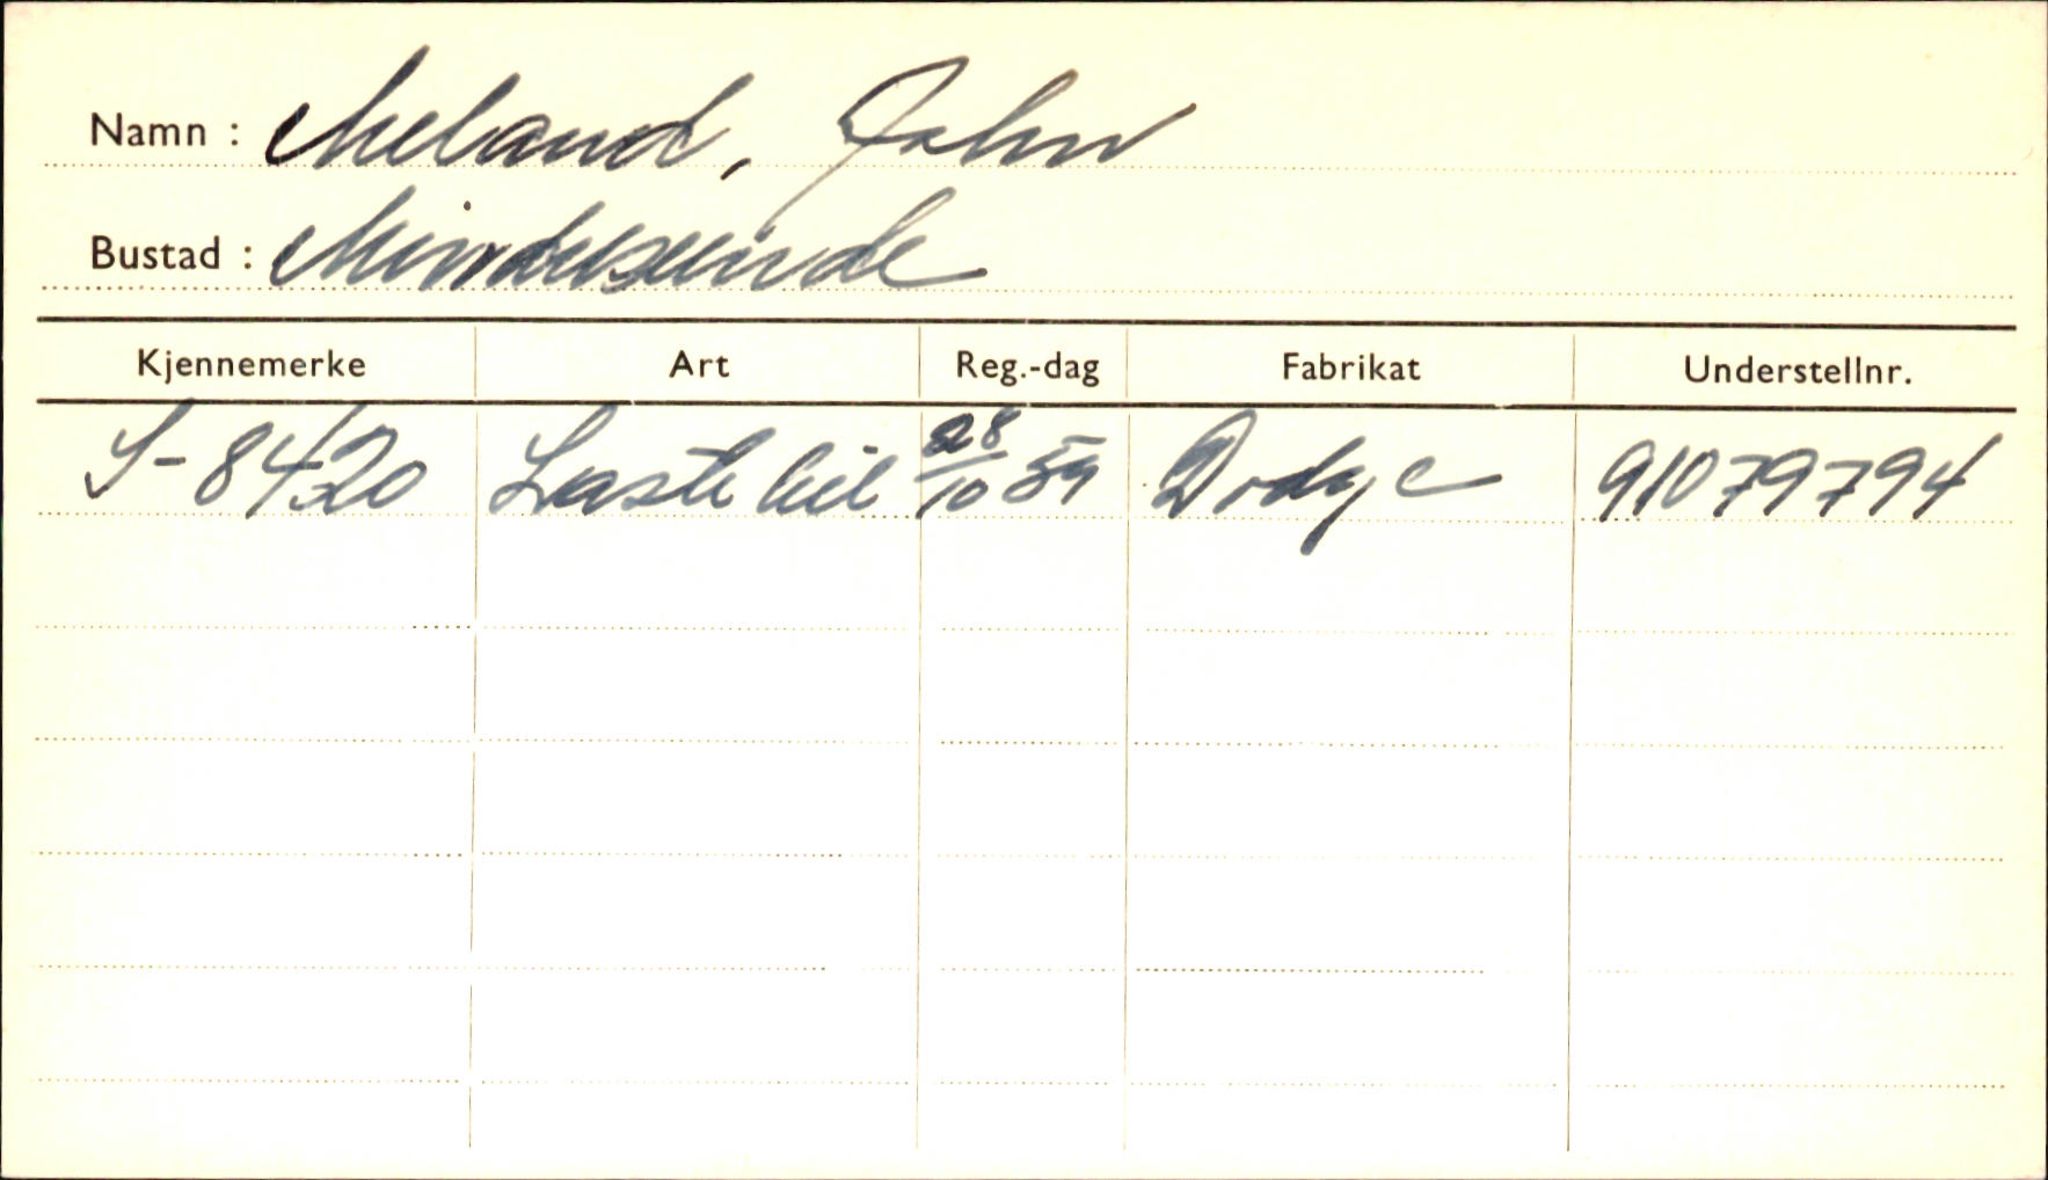 Namn : Meland, John
Bustad : Mindresunde
Kjennemerke Art Reg.-dag Fabrikat Understellnr.
S-8420 Lastebil 28/10 59 Dodge 91079794